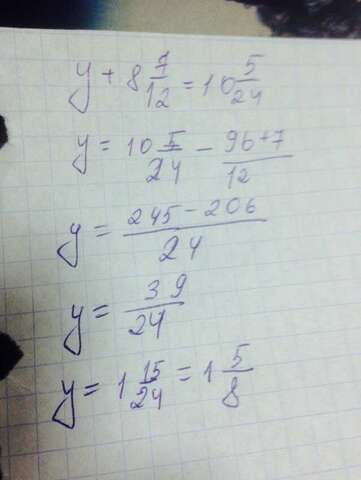 y + 8 7/12 = 10 5/24
y = 10 5/24 - 96+7/12
y = 245-206/24
y = 39/24
y = 1 15/24 = 1 5/8